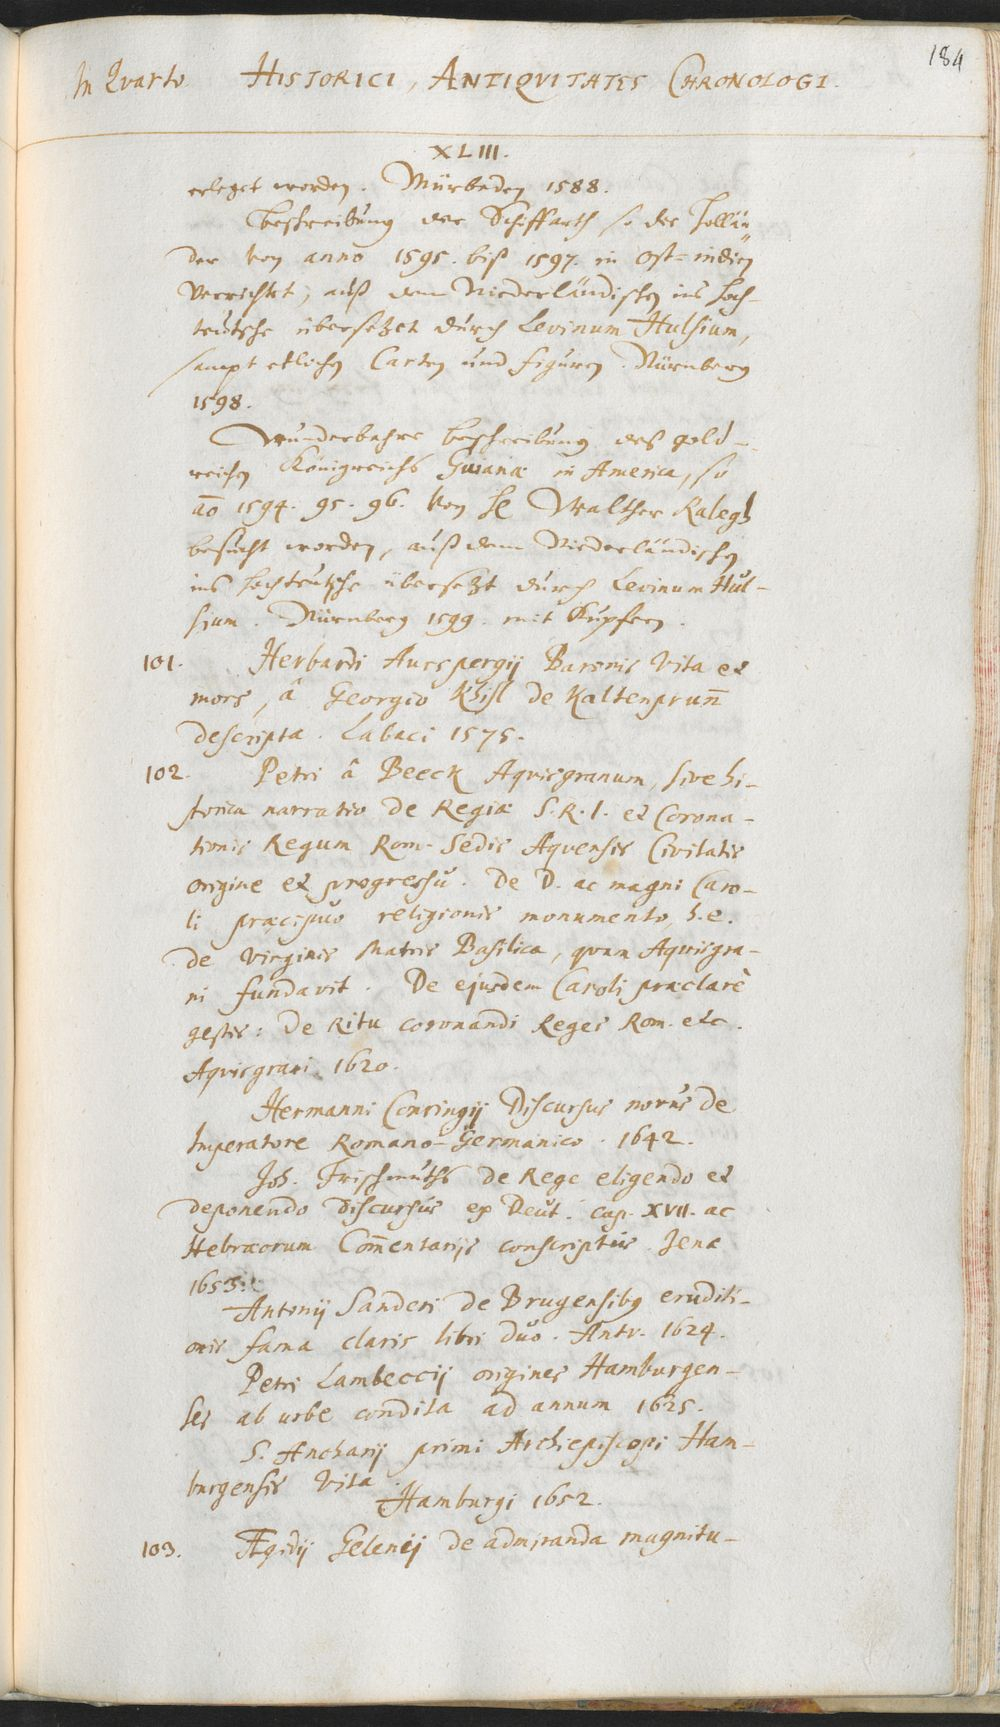 184
In Qvarto HISTORICI, ANTIQVITATES CHRONOLOGI.
XLIII.
erleget worden. Nürnberg 1588.
Beschreibung der Schiffarth so die Hollän
der von anno 1595. biß 1597. in Ost=indien
verrichtet, auß dem Niederländischen ins Hoch-
teutsche übersetzet durch Levinum Hulsium,
sampt etlichen Carten und figuren. Nürnberg
1598.
Wunderbahre beschreibung deß gold-
reichen Königreichs Guianæ in America, so
aō 1594. 95. 96. von H Walther Ralegh
besucht worden, auß dem Niederländischen
ins hochteutsche übersetzt durch Levinum Hul-
sium. Nürnberg 1599. mit Kupfern.
101. Herbardi Aurspergij Baronis vita et
mors, â Georgio Khisl de Kaltenprun̄
descripta. Labaci 1575.
102. Petri â Beeck Aqvisgranum, sive hi-
storica narratio de Regiæ S. R. I. et Corona-
tionis Regum Rom. Sedis Aqvensis Civitatis
origine et progressu. De D. ac magni Caro-
li præcipuo religionis monumento, h.e.
de virginis Matris Basilica, qvam Aqvisgra-
ni fundavit. De ejusdem Caroli præclarè
gestis: De Ritu coronandi Reges Rom. etc.
Aqvisgrani. 1620.
Hermanni Conringij Discursus novus de
Imperatore Romano-Germanico. 1642.
Joh. Frischmuths de Rege eligendo et
deponendo discursus ex Deut. cap. XVII. ac
Hebræorum Com̄entarijs conscriptus. Jenæ
1653.
Antonij Sanderi de Brugensibq eruditi-
onis fama claris libri duo. Antv. 1624.
Petri Lambeccij origines Hamburgen-
ses ab urbe condita ad annum 1625.
S. Ancharij primi Archiepiscopi Ham-
burgensis vita.
Hamburgi 1652.
103. Ægidij Gelenij de admiranda magnitu-